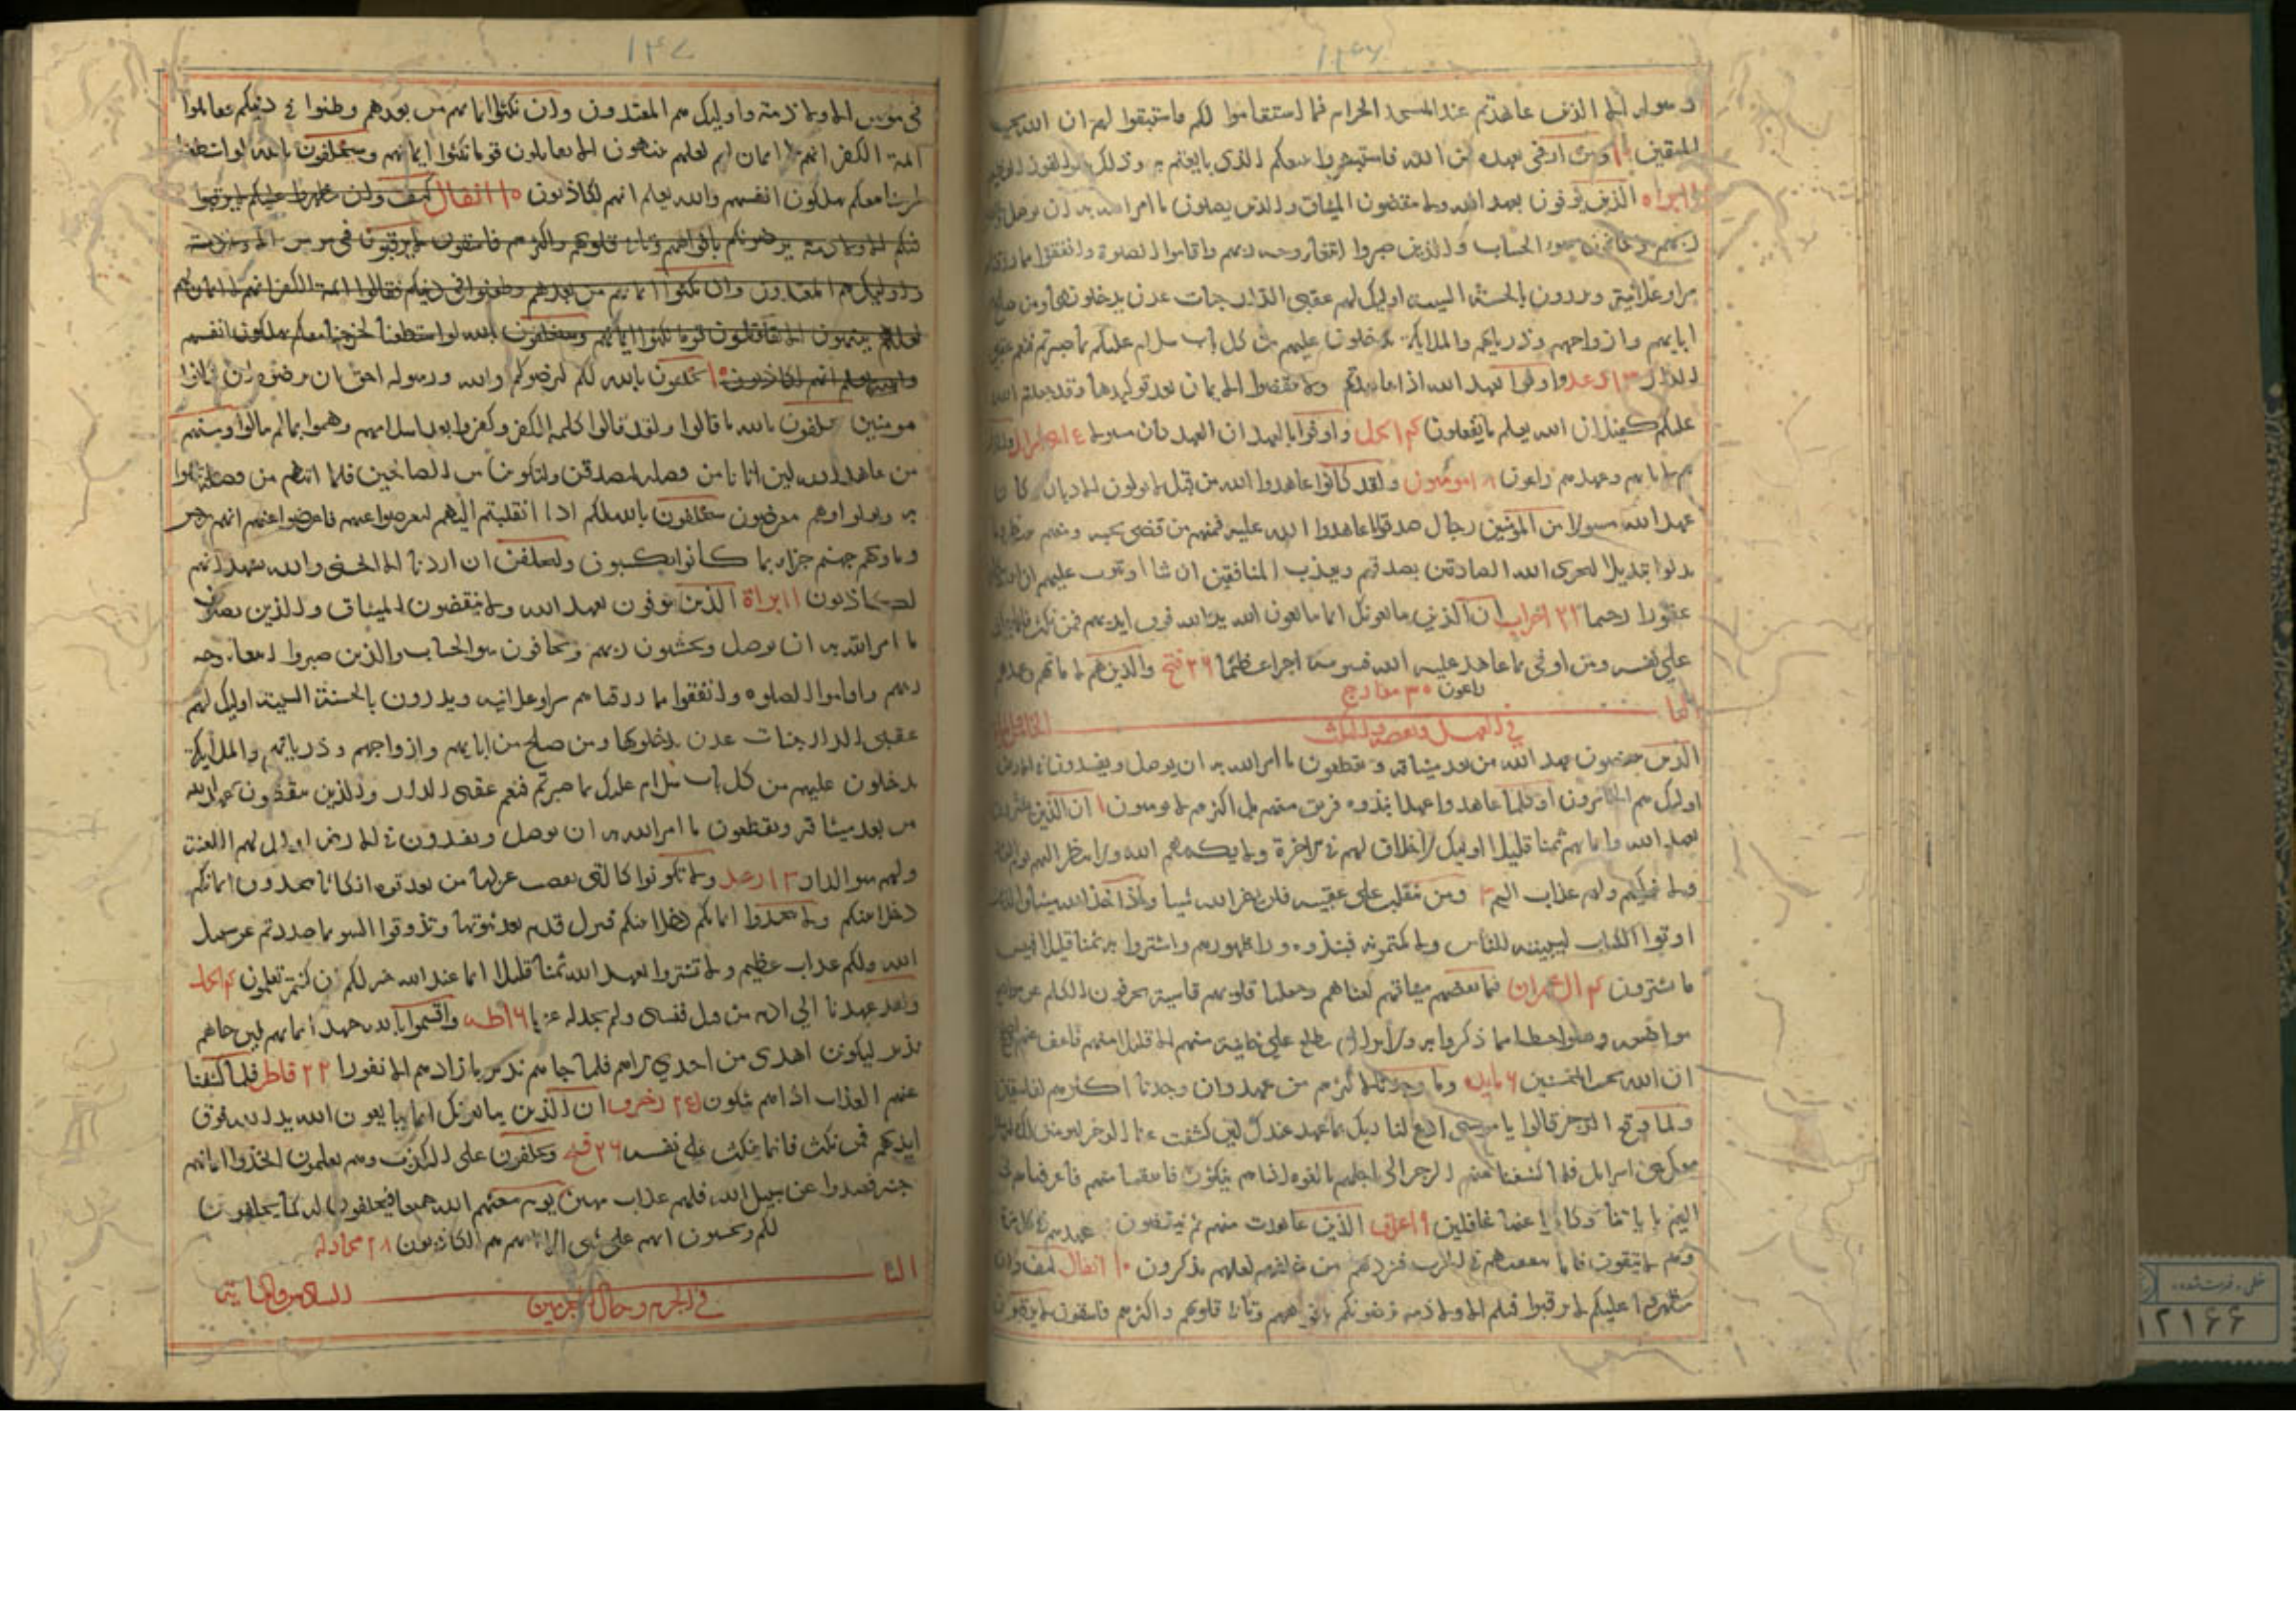 ۱۴۶
رسوله الا الذين عاهدتم عند المسجد الحرام فما استقاموا لكم فاستقيموا لهم ان الله يحب
المتقين ومن اوفى بعهده من الله فاستبشروا ببيعكم الذي بايعتم به وذلك هو الفوز العظيم
براه الذين يوفون بعهد الله ولا ينقضون الميثاق والذين يصلون ما امر الله به ان يوصل
ربهم ويخافون سوء الحساب والذين صبروا ابتغاء وجه ربهم واقاموا الصلوة وانفقوا مما رزقناهم
سرا وعلانية ويدرون بالحسنة السيئة اوليك لهم عقبى الدار جنات عدن يدخلونها ومن صلح
ابايهم وازواجهم وذرياتهم والملايكة يدخلون عليهم من كل باب سلام عليكم بما صبرتم فنعم عقبى
الدار ۱۳ رعد واوفوا بعهد الله اذا عاهدتم ولا تنقضوا الايمان بعد توكيدها وقد جعلتم الله
عليكم كفيلا ان الله يعلم ما تفعلون نحل واوفوا بالعهد ان العهد كان مسولا
لاماناتهم وعهدهم راعون ۱۸ مومنون ولقد كانوا عاهدوا الله من قبل لا يولون الادبار وكان
عهد الله مسولا من المؤمنين رجال صدقوا ما عاهدوا الله عليه فمنهم من قضى نحبه ومنهم من ينتظر وما
بدلوا تبديلا ليجزى الله الصادقين بصدقهم ويعذب المنافقين ان شا او يتوب عليهم ان الله كان
غفورا رحيما ۲۱ احزاب ان الذين يبايعونك انما يبايعون الله يد الله فوق ايديهم فمن نكث فانما ينكث
على نفسه ومن اوفى بما عاهد عليه الله فسيوتيه اجرا عظيما ۲۶ فتح والذين هم لاماناتهم وعهدهم
راعون ۳۰ معارج
البا
الذين ينقضون عهد الله من بعد ميثاقه ويقطعون ما امر الله به ان يوصل ويفسدون في الارض
اوليك هم الخاسرون اوكلما عاهدوا عهدا نبذه فريق منهم بل اكثرهم لا يومنون ۱ ان الذين يشترون
بعهد الله وايمانهم ثمنا قليلا اوليك لا خلاق لهم في الاخرة ولا يكلمهم الله ولا ينظر اليهم يوم القيامة
ولا يزكيهم ولهم عذاب اليم ۳ ومن ينقلب على عقبيه فلن يضر الله شيا واذ اخذ الله ميثاق الذين
اوتوا الكتاب ليبيننه للناس ولا يكتمونه فنبذوه وراء ظهورهم واشتروا به ثمنا قليلا فبيس
ما يشترون ال عمران فبما نقضهم ميثاقهم لعناهم وجعلنا قلوبهم قاسية يحرفون الكلم عن مواضعه
ونسوا حظا مما ذكروا به ولا تزال تطلع على خاينة منهم الا قليلا منهم فاعف عنهم واصفح
ان الله يحب المحسنين ۶ مايده وما وجدنا لاكثرهم من عهد وان وجدنا اكثرهم لفاسقين
ولما وقع الرجز قالوا يا موسى ادع لنا ربك بما عهد عندك لين كشفت عنا الرجز لنومنن لك ولنرسلن
معك بنى اسرايل فلما كشفنا عنهم الرجز الى اجل هم بالغوه اذا هم ينكثون فانتقمنا منهم فاغرقناهم فى
اليم باياتنا وكانوا عنها غافلين ۹ اعراف الذين عاهدت منهم ثم ينقضون عهدهم فى كل مرة
وهم لا يتقون فاما تثقفنهم فى الحرب فشرد بهم من خلفهم لعلهم يذكرون ۱۰ انفال كيف وان
يظهروا عليكم لا يرقبوا فيكم الا ولا ذمة يرضونكم بافواههم وتابى قلوبهم واكثرهم فاسقون لا يرقبون
۱۴۷
فى مومن الا ولا ذمة واوليك هم المعتدون وان نكثوا ايمانهم من بعد عهدهم وطعنوا فى دينكم فقاتلوا
ائمة الكفر انهم لا ايمان لهم لعلهم ينتهون الا تقاتلون قوما نكثوا ايمانهم وسيحلفون بالله لو استطعنا
لخرجنا معكم يهلكون انفسهم والله يعلم انهم لكاذبون ۱۰ انفال كيف وان يظهروا عليكم لا يرقبوا
فيكم الا ولا ذمة يرضونكم بافواههم وتابى قلوبهم واكثرهم فاسقون لا يرقبون فى مومن الا ولا ذمة
واوليك هم المعتدون وان نكثوا ايمانهم من بعد عهدهم وطعنوا فى دينكم فقاتلوا ائمة الكفر انهم لا ايمان لهم
لعلهم ينتهون الا تقاتلون قوما نكثوا ايمانهم وسيحلفون بالله لو استطعنا لخرجنا معكم يهلكون انفسهم
والله يعلم انهم لكاذبون يحلفون بالله لكم ليرضوكم والله ورسوله احق ان يرضوه ان كانوا
مومنين يحلفون بالله ما قالوا ولقد قالوا كلمة الكفر وكفروا بعد اسلامهم وهموا بما لم ينالوا ومنهم
من عاهد الله لين اتانا من فضله لنصدقن ولنكونن من الصالحين فلما اتاهم من فضله بخلوا
به وتولوا وهم معرضون سيحلفون بالله لكم اذا انقلبتم اليهم لتعرضوا عنهم فاعرضوا عنهم انهم رجس
وماويهم جهنم جزاء بما كانوا يكسبون وليحلفن ان اردنا الا الحسنى والله يشهد انهم
لكاذبون ۱۱ براة الذين يوفون بعهد الله ولا ينقضون الميثاق والذين يصلون
ما امر الله به ان يوصل ويخشون ربهم ويخافون سو الحساب والذين صبروا ابتغاء وجه
ربهم واقاموا الصلوه وانفقوا مما رزقناهم سرا وعلانيه ويدرون بالحسنة السيئة اوليك لهم
عقبى الدار جنات عدن يدخلونها ومن صلح من ابايهم وازواجهم وذرياتهم والملايكة
يدخلون عليهم من كل باب سلام عليكم بما صبرتم فنعم عقبى الدار والذين ينقضون عهد الله
من بعد ميثاقه ويقطعون ما امر الله به ان يوصل ويفسدون فى الارض اوليك لهم اللعنة
ولهم سو الدار ۱۳ رعد ولا تكونوا كالتى نقضت غزلها من بعد قوة انكاثا تتخذون ايمانكم
دخلا بينكم ولا تتخذوا ايمانكم دخلا بينكم فتزل قدم بعد ثبوتها وتذوقوا السو بما صددتم عن سبيل
الله ولكم عذاب عظيم ولا تشتروا بعهد الله ثمنا قليلا انما عند الله خير لكم ان كنتم تعلمون نحل
ولقد عهدنا الى ادم من قبل فنسى ولم نجد له عزما ۱۶ طه واقسموا بالله جهد ايمانهم لين جاهم
نذير ليكونن اهدى من احدى الامم فلما جاهم نذير ما زادهم الا نفورا ۲۲ فاطر فلما كشفنا
عنهم العذاب اذا هم ينكثون زخرف ان الذين يبايعونك انما يبايعون الله يد الله فوق
ايديهم فمن نكث فانما ينكث على نفسه ۲۶ فتح ويحلفون على الكذب وهم يعلمون اتخذوا ايمانهم
جنة فصدوا عن سبيل الله فلهم عذاب مهين يوم يبعثهم الله جميعا فيحلفون له كما يحلفون
لكم ويحسبون انهم على شى الا انهم هم الكاذبون ۲۸ مجادله
البا
فى الجرم وحال المجرمين
۱۲۱۶۶